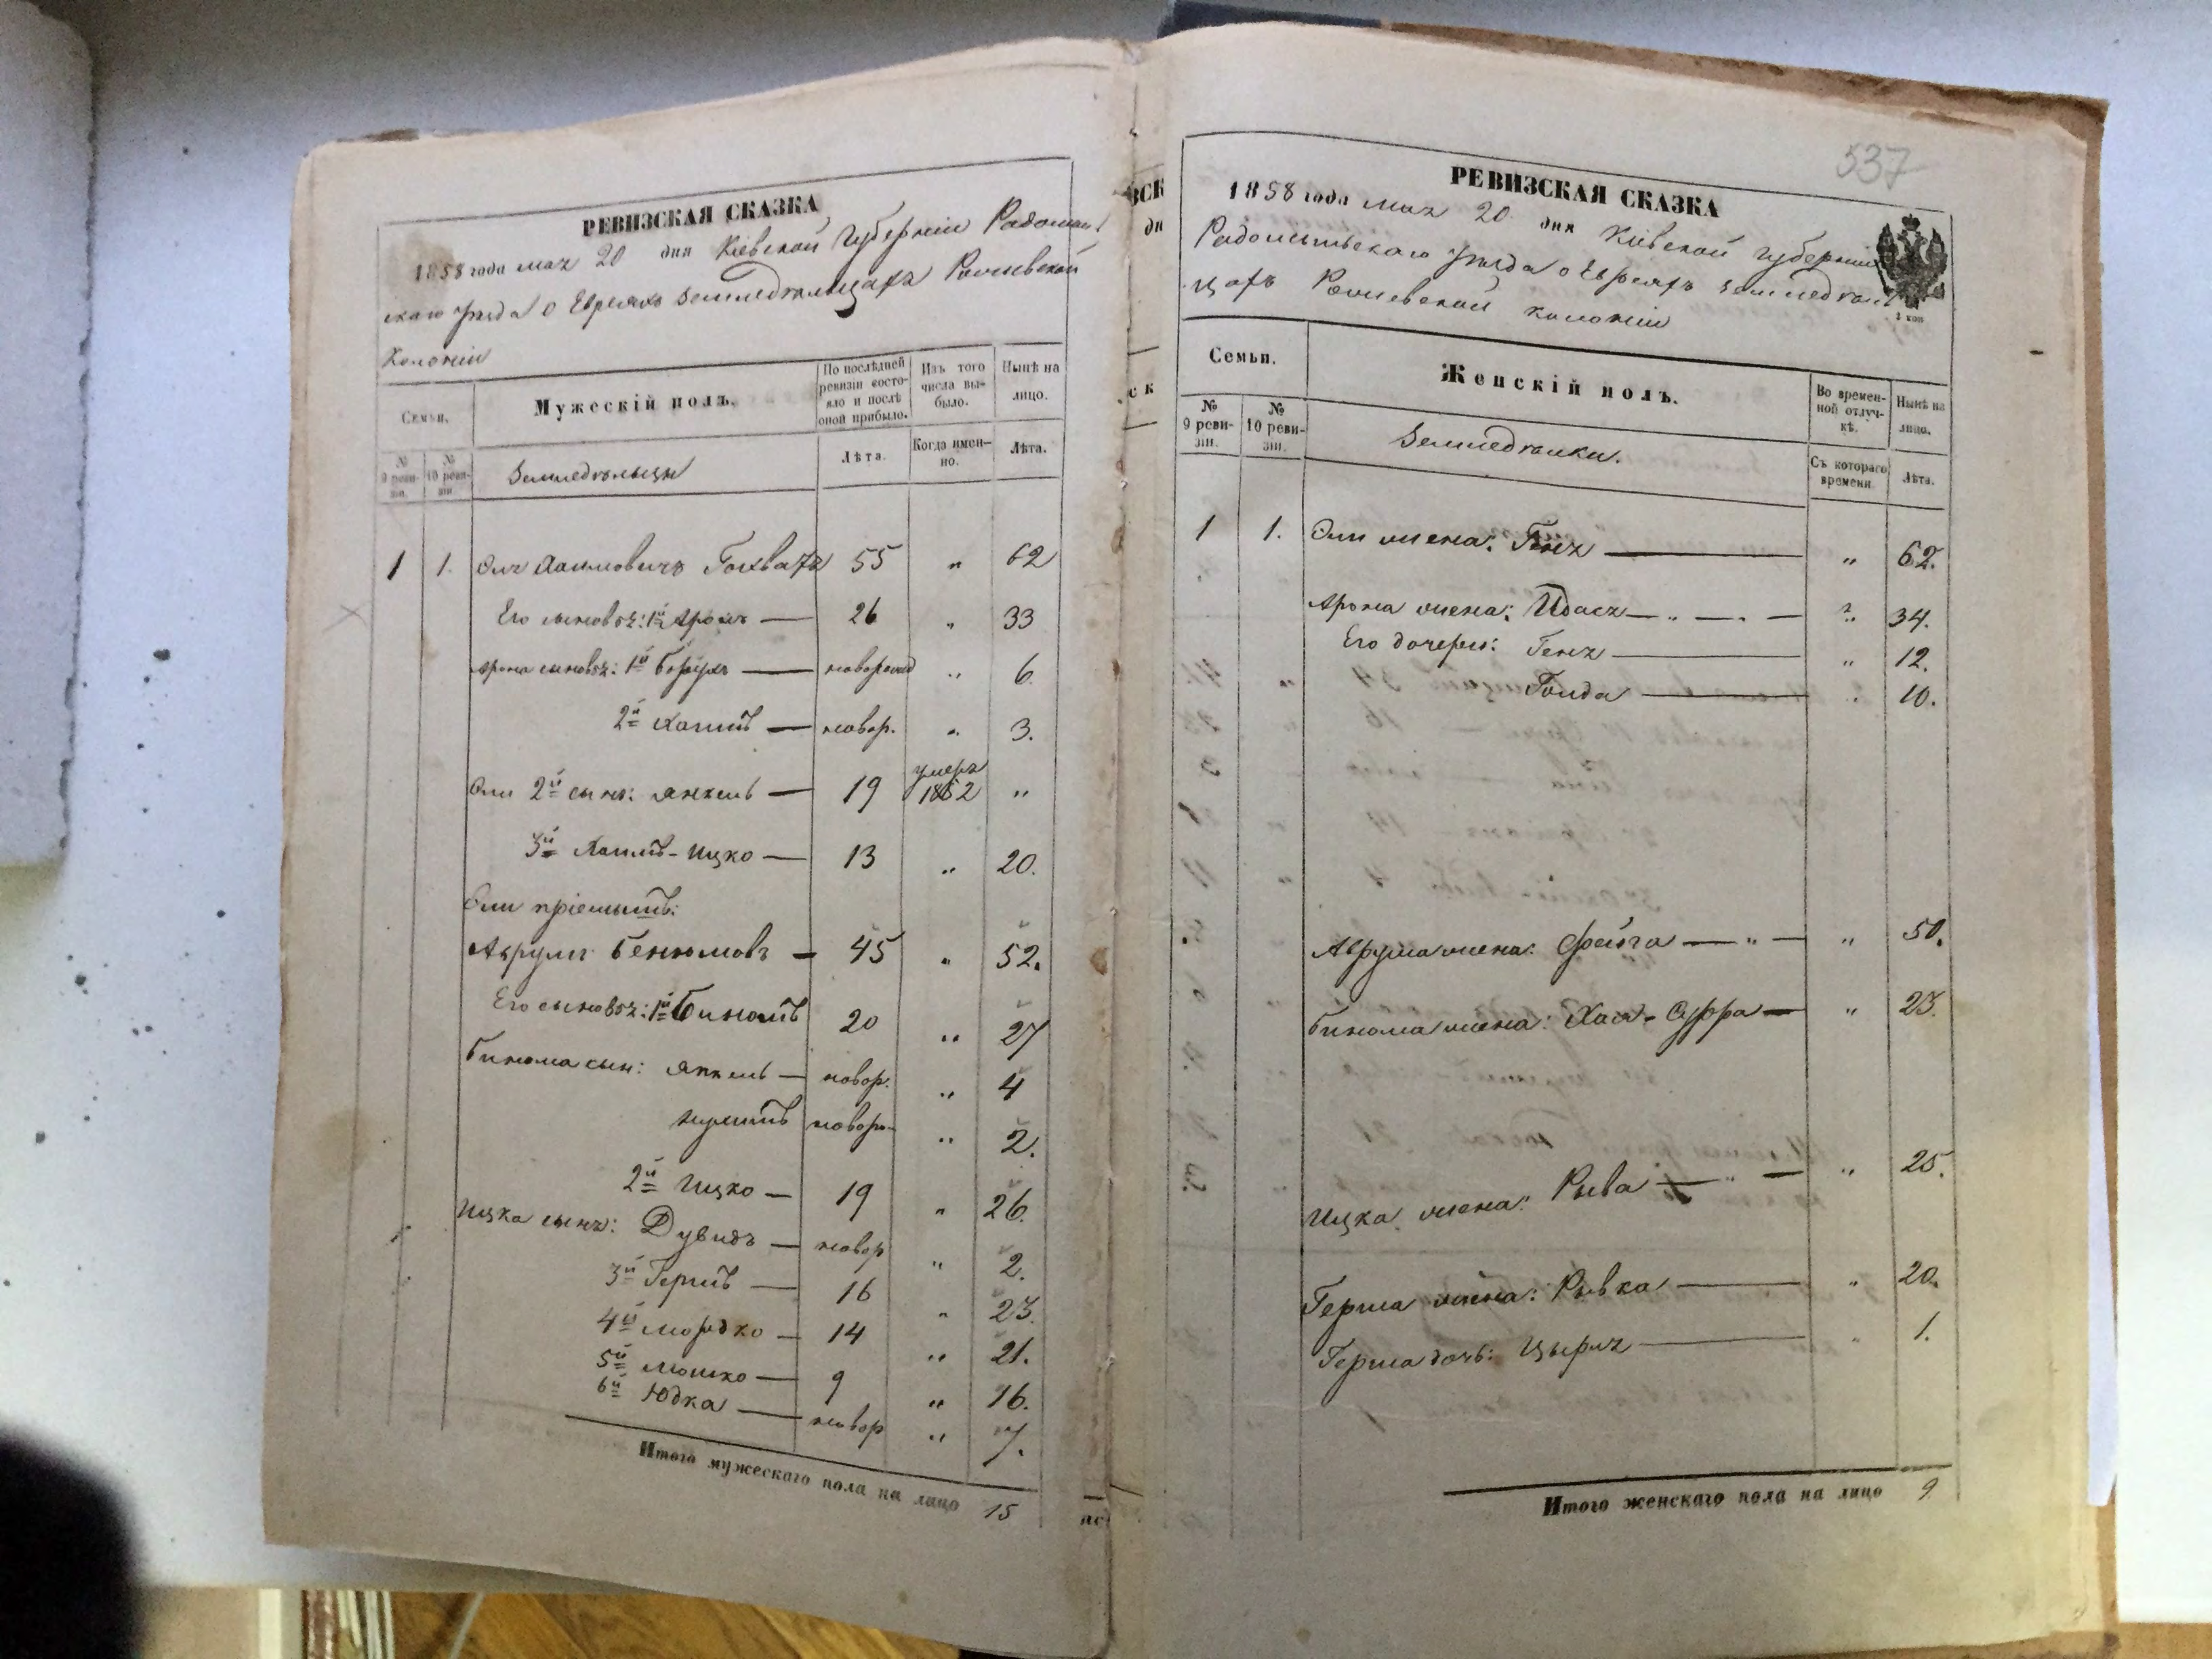 РЕВИЗСКАЯ СКАЗКА
1858 года мая 20 дня Кіевской Губерніи Радомысль
скаго уѣзда о Евреяхъ земледѣльцахъ
Колоніи
Семьи.
Мужескій полъ.
По послѣдней ревизіи состояло и послѣ оной прибыло.
Изъ того числа выбыло.
Нынѣ на лицо.
№ 9 ревизіи.
№ 10 ревизіи.
Земледѣльцы
Лѣта.
Когда именно.
Лѣта.
1 1. Эля Хаимовичъ 55 " 62
Его сыновья: 1й Аронъ — 26 " 33
Арона сыновья: 1й Борухъ — новорожд " 6
2й Хаимъ — новор. " 3.
Эли 2й сынъ: Янкель — 19 умеръ 1852 "
3й Хаимъ-Ицко — 13 " 20.
Эли пріемышъ:
Аврумъ Бенюмовъ — 45 " 52.
Его сыновья: 1й Бинюмъ 20 " 27
Бинюма сын: Янкель — новор. " 4
новор. " 2.
2й Ицко — 19 " 26.
Ицка сынъ: Дувидъ — новор " 2.
3й Гершъ — 16 " 23.
4й Мордко — 14 " 21.
5й Мошко — 9 " 16.
6й Юдка — новор " 7.
Итого мужескаго пола на лицо 15
537
РЕВИЗСКАЯ СКАЗКА
1858 года мая 20 дня Кіевской Губерніи
Радомысльскаго уѣзда о Евреяхъ земледѣль
цахъ колоніи
2 коп
Семьи.
Женскій полъ.
Во временной отлучкѣ.
Нынѣ на лицо.
№ 9 ревизіи.
№ 10 ревизіи.
Земледѣлки.
Съ котораго времени.
Лѣта.
1 1. Эли жена: Геня — " 62.
Арона жена: Идася — " — " 34.
Его дочери: Геня — " 12.
Голда — " 10.
Аврума жена: Фейга — " — " 50.
Бинюма жена: Хая-Сурра — " 23.
Ицка жена: Рыва — " — " 25.
Герша жена: Рывка — " 20.
Герша дочь: Цырля — " 1.
Итого женскаго пола на лицо 9